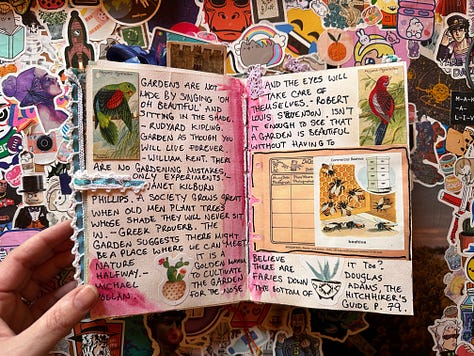 GARDENS ARE NOT
MADE BY SINGING 'OH
OH BEAUTIFUL' AND
SITTING IN THE SHADE.
- RUDYARD KIPLING.
GARDEN AS THOUGH YOU
WILL LIVE FOREVER.
- WILLIAM KENT. THERE
ARE NO GARDENING MISTAKES,
ONLY EXPERIMENTS. -
JANET KILBURN
PHILLIPS. A SOCIETY GROWS GREAT
WHEN OLD MEN PLANT TREES
WHOSE SHADE THEY WILL NEVER SIT
IN. - GREEK PROVERB. THE
GARDEN SUGGESTS THERE MIGHT
BE A PLACE WHERE WE CAN MEET
NATURE
HALFWAY. -
MICHAEL
POLLAN.
IS A
GOLDEN
TO CULTIVATE
THE GARDEN
FOR THE NOSE
AND THE EYES WILL
TAKE CARE OF
THEMSELVES. - ROBERT
LOUIS STEVENSON. ISN'T
IT ENOUGH TO SEE THAT
A GARDEN IS BEAUTIFUL
WITHOUT HAVING TO
BELIEVE
THERE ARE
FARIES DOWN
THE BOTTOM OF
IT TOO?
DOUGLAS
ADAMS, THE
HITCHHIKER'S
GUIDE P. 79.